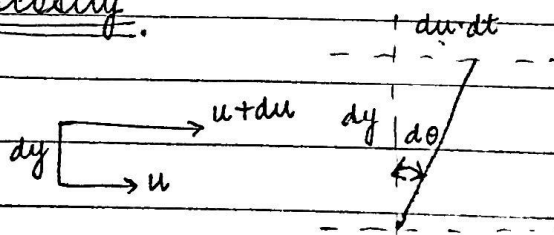 du·dt
u+du
dy
dθ
dy
u